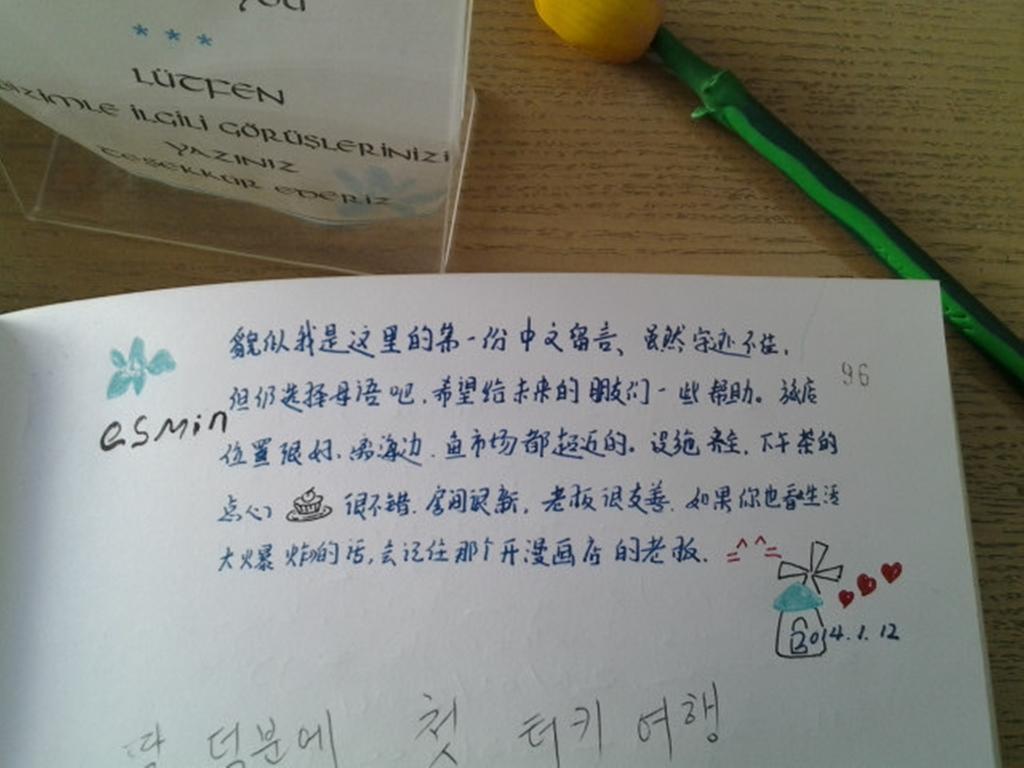 you
* * *
LÜTFEN
BİZİMLE İLGİLİ GÖRÜŞLERİNİZİ
YAZINIZ
TEŞEKKÜR EDERİZ
貌似我是这里的第一份中文留言、虽然字迹不佳,
96
但仍选择母语吧,希望给未来的朋友们一些帮助。旅店
esmin
位置很好、离海边、鱼市场都超近的。设施齐全,下午茶的
点心 很不错.房间很新,老板很友善.如果你也看生活
大火爆炸的话,会记住那个开漫画店的老板. =^^=
2014.1.12
덕분에 첫 터키 여행